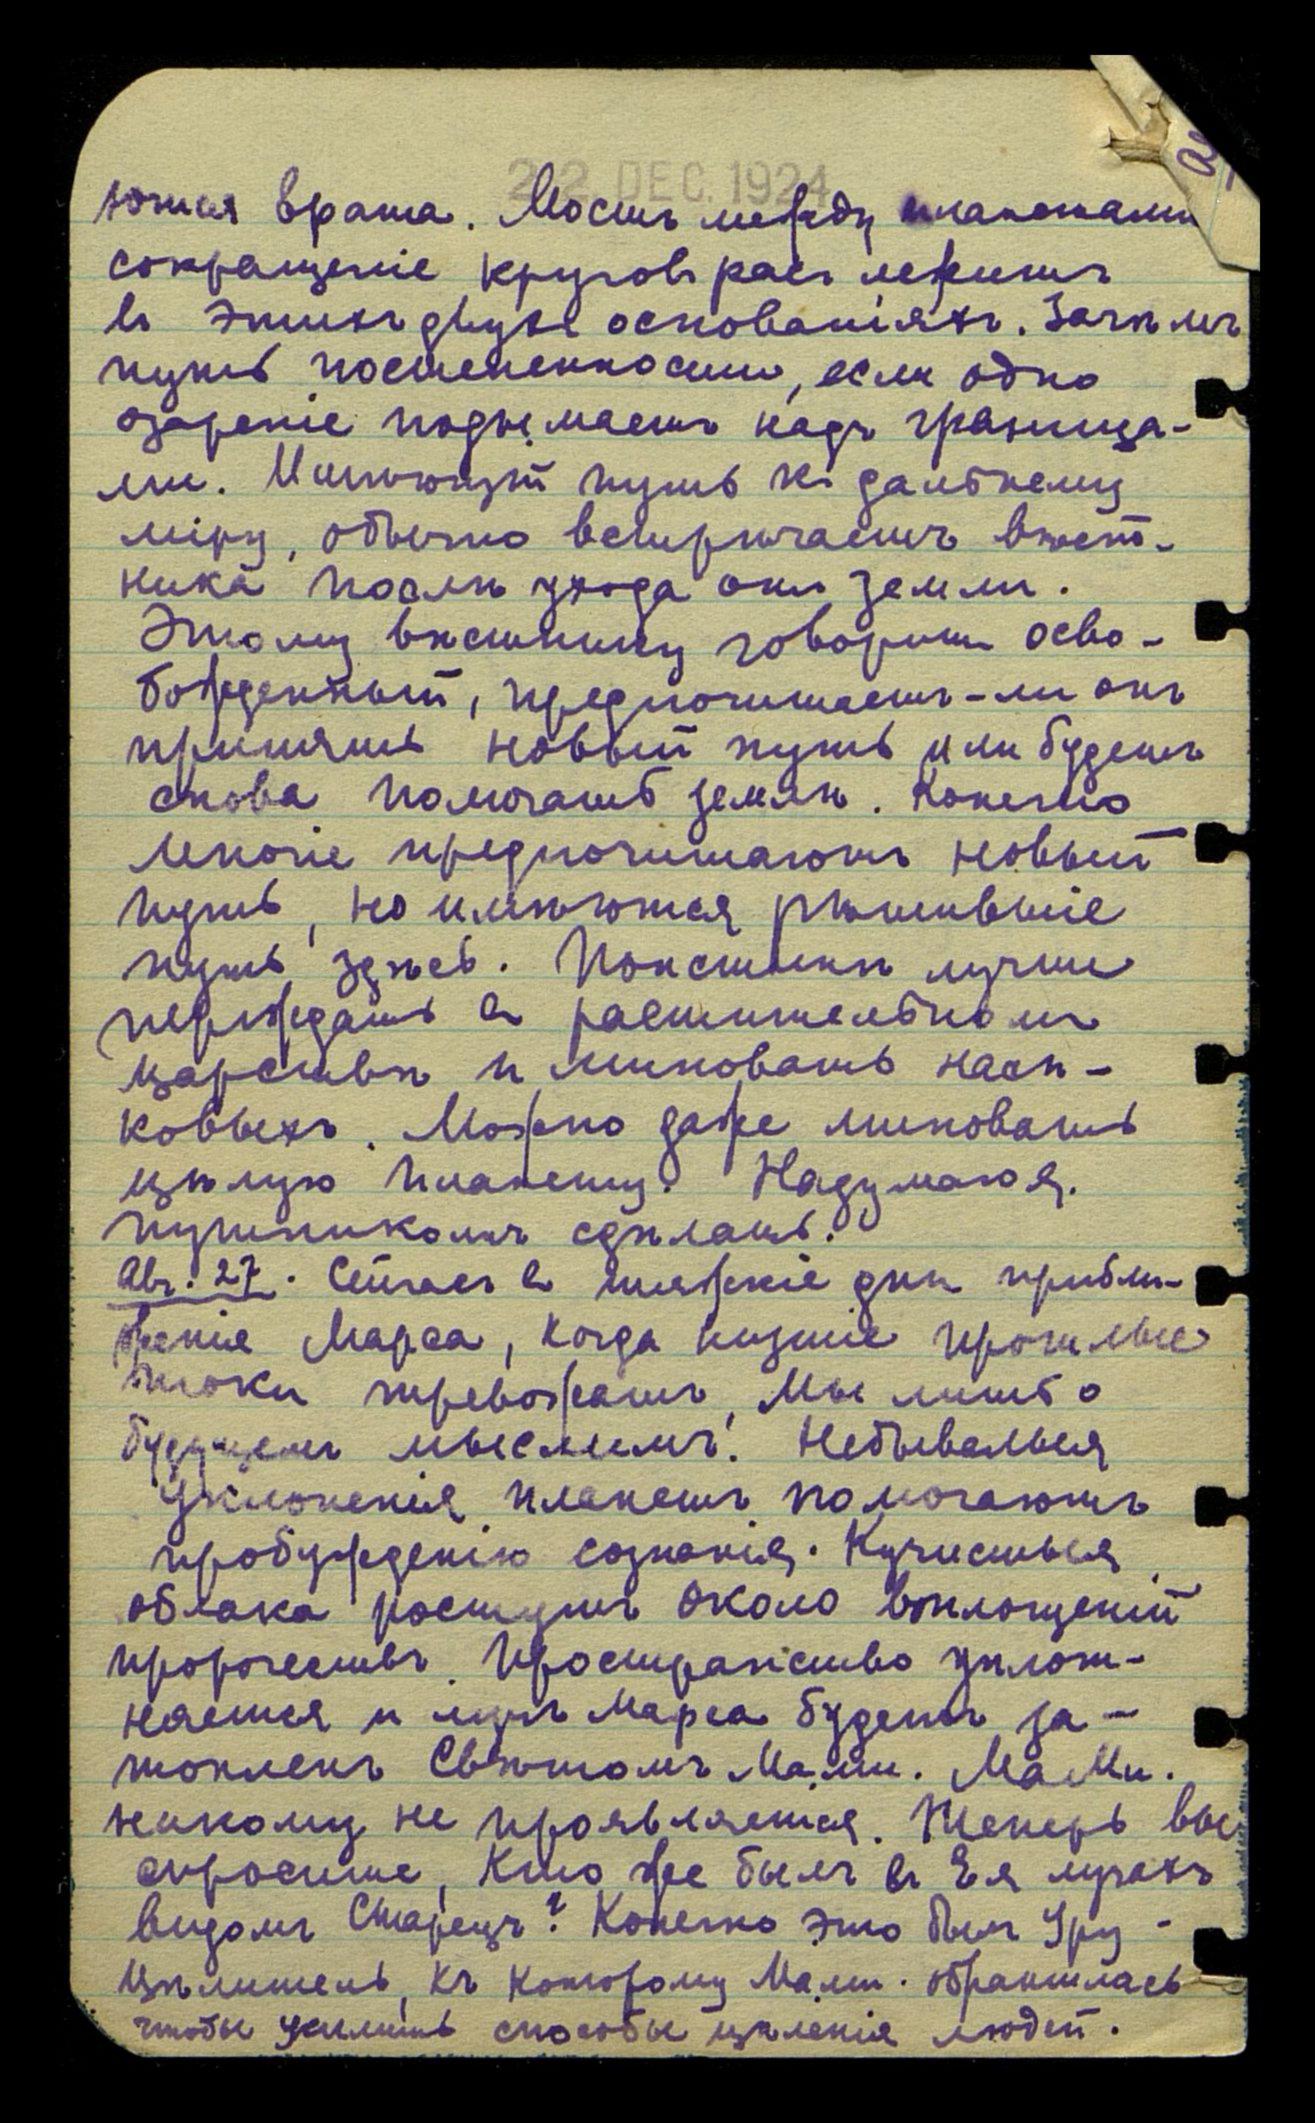 22 DEC. 1924
ются врата. Мостъ между планетами
сокращеніе круговъ расъ лежитъ
въ этихъ двухъ основаніяхъ. Зачѣмъ
путь постепенности, если одно
озареніе подымаетъ надъ граница-
ми. Имѣющій путь къ дальнему
міру, обычно встрѣчаетъ вѣст-
ника послѣ ухода отъ земли.
Этому вѣстнику говоритъ осво-
божденный, предпочитаетъ-ли онъ
принять новый путь или будетъ
снова помогать землѣ. Конечно
многіе предпочитаютъ новый
путь, но имѣются рѣшившіе
путь здѣсь. Поистинѣ лучше
переждать въ растительномъ
царствѣ и миновать насѣ-
комыхъ. Можно даже миновать
цѣлую планету. Надумаюя.
путникомъ сдѣлать.
Авг. 27. Сейчасъ въ тяжкіе дни прибли-
женія Марса, когда низшіе прошлые
токи тревожатъ, мы лишь о
будущемъ мыслимъ. Небывалыя
уклоненія планетъ помогаютъ
пробужденію сознанія. Кучистыя
облака растутъ около воплощеній
пророчествъ. Пространство уплот-
няется и лучъ Марса будетъ за-
топленъ Свѣтомъ Ма.ми. Ма.Ми.
никому не проявляется. Теперь вы
спросите, Кто же былъ въ Ея лучахъ
видомъ Старецъ? Конечно это былъ Уру -
Цѣлитель, къ которому Ма.ми. обратилась
чтобы усилить способы цѣленія людей.